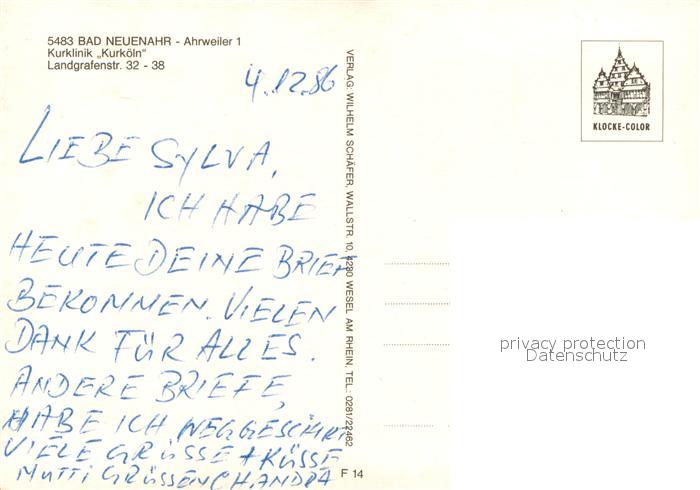 5483 BAD NEUENAHR - Ahrweiler 1
Kurklinik „Kurköln"
Landgrafenstr. 32 - 38
4.12.86
LIEBE SYLVA,
ICH HABE
HEUTE DEINE BRIEF
BEKOMMEN. VIELEN
DANK FÜR ALLES.
ANDERE BRIEFE,
HABE ICH WEGGESCHIKT
VIELE GRÜSSE + KÜSSE
MUTTI GRÜSSEN
VERLAG: WILHELM SCHÄFER, WALLSTR. 10, 4230 WESEL AM RHEIN, TEL.: 0281/22462
F 14
KLOCKE-COLOR
privacy protection
Datenschutz